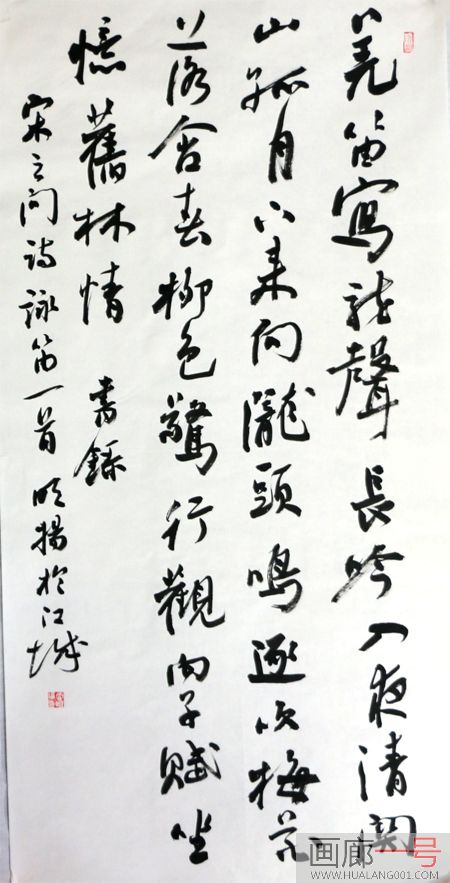 羌笛寫龍聲長吟入夜清關
山孤月下來向隴頭鳴逐吹梅花
落含春柳色驚行觀向子賦坐
憶舊林情 書錄
宋之問詩詠笛一首 明揚於江城
画廊一号
WWW.HUALANG001.COM